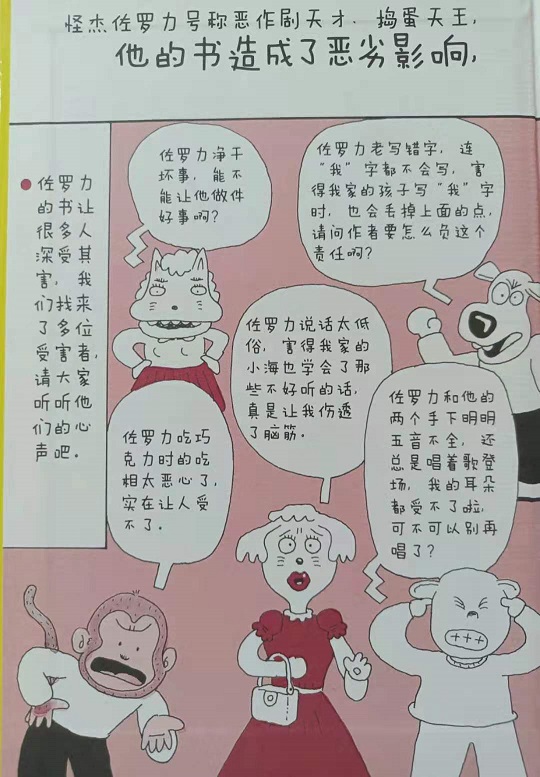 怪杰佐罗力号称恶作剧天才．捣蛋天王，
他的书造成了恶劣影响，
●佐罗力
的书让
很多人
深受其
害，我
们找来
了多位
受害者，
请大家
听听他
们的心
声吧．
佐罗力净干
坏事，能不
能让他做件
好事啊？
佐罗力老写错字，连
“我”字都不会写，害
得我家的孩子写“我”字
时，也会毛掉上面的点，
请问作者要怎么负这个
责任啊？
佐罗力说话太低
俗，害得我家的
小海也学会了那
些不好听的话，
真是让我伤透
了脑筋．
佐罗力吃巧
克力时的吃
相太恶心了，
实在让人受
不了．
佐罗力和他的
两个手下明明
五音不全，还
总是唱着歌登
场，我的耳朵
都受不了啦，
可不可以别再
唱了？